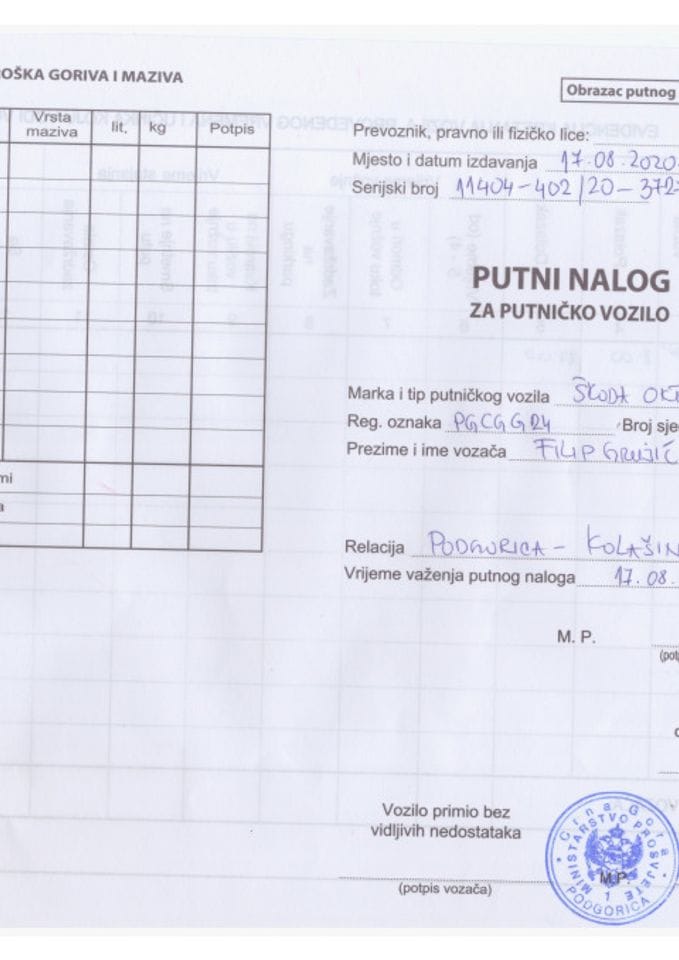 OŠKA GORIVA I MAZIVA
Vrsta maziva
lit.
kg
Potpis
mi
a
Obrazac putnog
Prevoznik, pravno ili fizičko lice:
Mjesto i datum izdavanja 17.08.2020.
Serijski broj 11404-402/20-372
PUTNI NALOG
ZA PUTNIČKO VOZILO
Marka i tip putničkog vozila ŠKODA OK
Reg. oznaka PGCG G24 Broj sje
Prezime i ime vozača FILIP GRUJIĆ
Relacija PODGORICA - KOLAŠIN
Vrijeme važenja putnog naloga 17.08.
M. P.
(pot
Vozilo primio bez
vidljivih nedostataka
(potpis vozača)
Crna Gora
MINISTARSTVO PROSVJETE
M.P.
1
PODGORICA